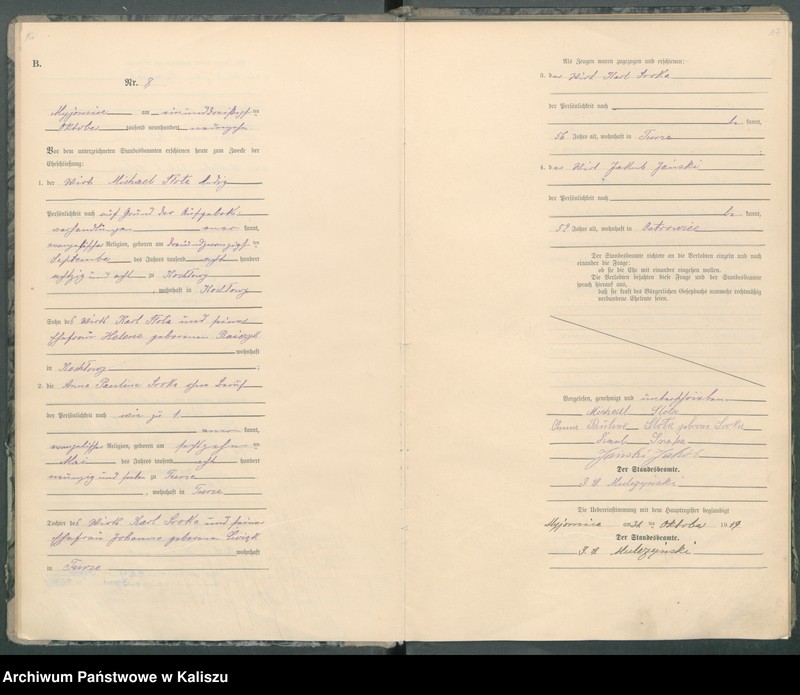 B.
Nr. 8
Myjomice am einunddreißigsten
Oktober tausend neunhundert neunzehn
Vor dem unterzeichneten Standesbeamten erschienen heute zum Zwecke der
Eheschließung:
1. der Wirt Michael Slota ledig
Persönlichkeit nach auf Grund der Aufgebots-
verhandlungen aner kannt,
evangelischer Religion, geboren am dreiundzwanzigsten
September des Jahres tausend acht hundert
achtzig und acht zu
, wohnhaft in
Sohn des Wirts Karl Slota und seiner
Ehefrau Helene geborenen
wohnhaft
in
2. die Anna Pauline Sroka ohne Beruf
der Persönlichkeit nach wie zu 1
aner kannt,
evangelischer Religion, geboren am sechszehnten
Mai des Jahres tausend acht hundert
neunzig und zu Turze
, wohnhaft in Turze
Tochter des Wirts Karl Sroka und seiner
Ehefrau Johanna geborenen
wohnhaft
in Turze
Als Zeugen waren zugezogen und erschienen:
3. der Wirt Karl Sroka
der Persönlichkeit nach
be kannt,
56 Jahre alt, wohnhaft in Turze
4. der Wirt Jakob Jański
der Persönlichkeit nach
be kannt,
59 Jahre alt, wohnhaft in Ostrowiec
Der Standesbeamte richtete an die Verlobten einzeln und nach
einander die Frage:
ob sie die Ehe mit einander eingehen wollen.
Die Verlobten bejahten diese Frage und der Standesbeamte
sprach hierauf aus,
daß sie kraft des Bürgerlichen Gesetzbuchs nunmehr rechtmäßig
verbundene Eheleute seien.
Vorgelesen, genehmigt und unterschrieben
Michael Slota
Anna Pauline Slota geborene Sroka
Jański Jakob
Der Standesbeamte.
I. V. Mulczyński
Die Uebereinstimmung mit dem Hauptregister beglaubigt
Myjomice am 31 ten Oktober 19 19
Der Standesbeamte.
I. V. Mulczyński
Archiwum Państwowe w Kaliszu